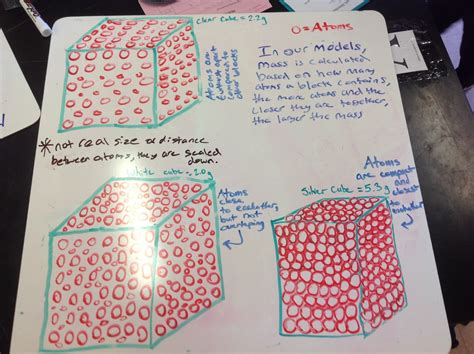 Clear Cube = 2.2g
O = Atoms
Atoms are
furthest apart
compared to
other blocks
In our models,
Mass is calculated
based on how many
atms a block contains,
the more atoms and the
closer they are together,
the larger the mass
*not real size or distance
between atoms, they are scaled
down.
White cube = 2.0g
Atoms
close
to eachother,
but not
overlapping
Silver Cube = 5.3g
Atoms
are compact
and
closest
to eachother